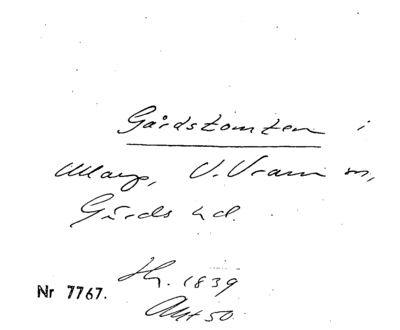 Gårdstomten i
Maryp, V. Vram sn,
Gärds hd.
Hg. 1839
Nr 7767.
Akt 50.